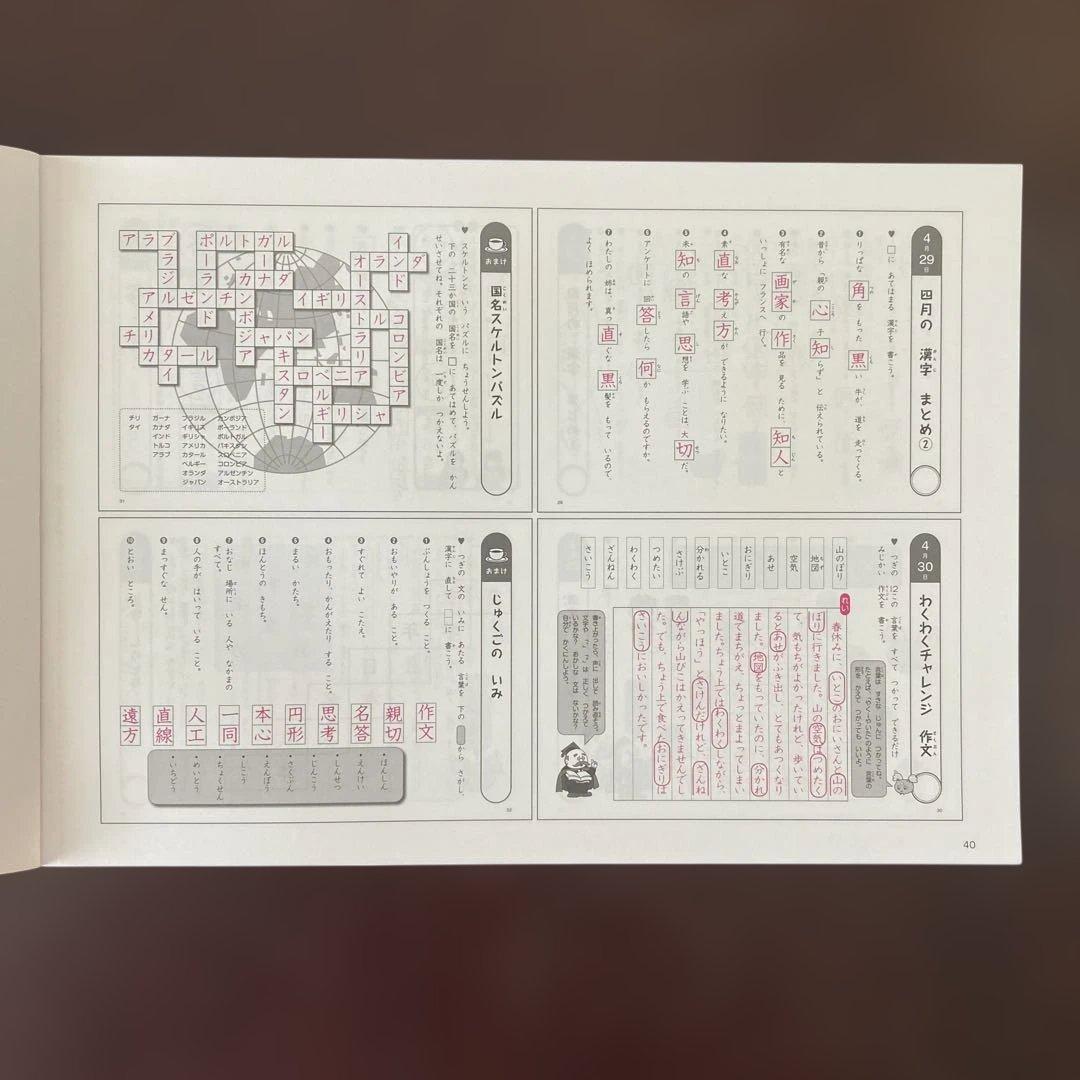 4月29日
四月の 漢字 まとめ②
♥ □に あてはまる 漢字を 書こう。
❶ りっぱな 角を もった 黒い 牛が、道を 走ってくる。
❷ 昔から 「親の 心 子 知らず」と 伝えられている。
❸ 有名な 画家の 作品を 見る ために、知人と
いっしょに フランスへ 行く。
❹ 素直な 考え方が できるように なりたい。
❺ 未知の 言語や 思想を 学ぶ ことは、大切だ。
❻ アンケートに 回答したら 何か もらえるのですか。
❼ わたしの 姉は、真っ直ぐな 黒髪を もって いるので、
よく ほめられます。
おまけ
国名スケルトンパズル
♥ スケルトンと いう パズルに ちょうせんしよう。
下の 二十三か国の 国名を □に あてはめて、パズルを かん
せいさせてね。それぞれの 国名は 一度しか つかえないよ。
アラブ
ブラジル
ポルトガル
ポーランド
ガーナ
カナダ
カンボジア
インド
オランダ
オーストラリア
アルゼンチン
アメリカ
イギリス
トルコ
コロンビア
チリ
カタール
タイ
ジャパン
パキスタン
スロベニア
ベルギー
ギリシャ
カンボジア
ポーランド
ポルトガル
パキスタン
スロベニア
コロンビア
アルゼンチン
オーストラリア
ブラジル
イギリス
ギリシャ
アメリカ
カタール
ベルギー
オランダ
ジャパン
ガーナ
カナダ
インド
トルコ
アラブ
チリ
タイ
31
4月30日
わくわくチャレンジ 作文
♥ つぎの 12この 言葉を すべて つかって できるだけ
みじかい 作文を 書こう。
言葉は すきな じゅんに つかってね。
たとえば、「やく→やいた」のように 言葉の
形を かえて つかっても いいよ。
山のぼり
地図
空気
あせ
おにぎり
いとこ
分かれる
さけぶ
つめたい
わくわく
ざんねん
さいこう
れい
春休みに、いとこのおにいさんと山の
ぼりに行きました。山の空気はつめたく
て、気もちがよかったけれど、歩いてい
るとあせがふき出し、とてもあつくなり
ました。地図をもっていたのに、分かれ
道でまちがえ、ちょっとまよってしまい
ました。ちょう上ではわくわくしながら、
「やっほう」とさけんだけれど、ざんね
んながら山びこはかえってきませんでし
た。でも、ちょう上で食べたおにぎりは
さいこうにおいしかったです。
書き上がったら、声に 出して 読み返そう。
文字や 「、」「。」は 正しく つかえて
いるかな? おかしな 文は ないかな?
自分で かくにんしよう。
30
おまけ
じゅくごの いみ
♥ つぎの 文の いみに あたる 言葉を 下の から さがし、
漢字に 直して □に 書こう。
❶ ぶんしょうを つくる こと。
作文
❷ おもいやりが ある こと。
親切
❸ すぐれて よい こたえ。
名答
❹ おもったり、かんがえたり する こと。
思考
❺ まるい かたち。
円形
❻ ほんとうの きもち。
本心
❼ おなじ 場所に いる 人や なかまの
すべて。
一同
❽ 人の手が はいって いる こと。
人工
❾ まっすぐな せん。
直線
❿ とおい ところ。
遠方
・ほんしん
・えんけい
・しんせつ
・じんこう
・さくぶん
・えんぽう
・しこう
・ちょくせん
・めいとう
・いちどう
32
40